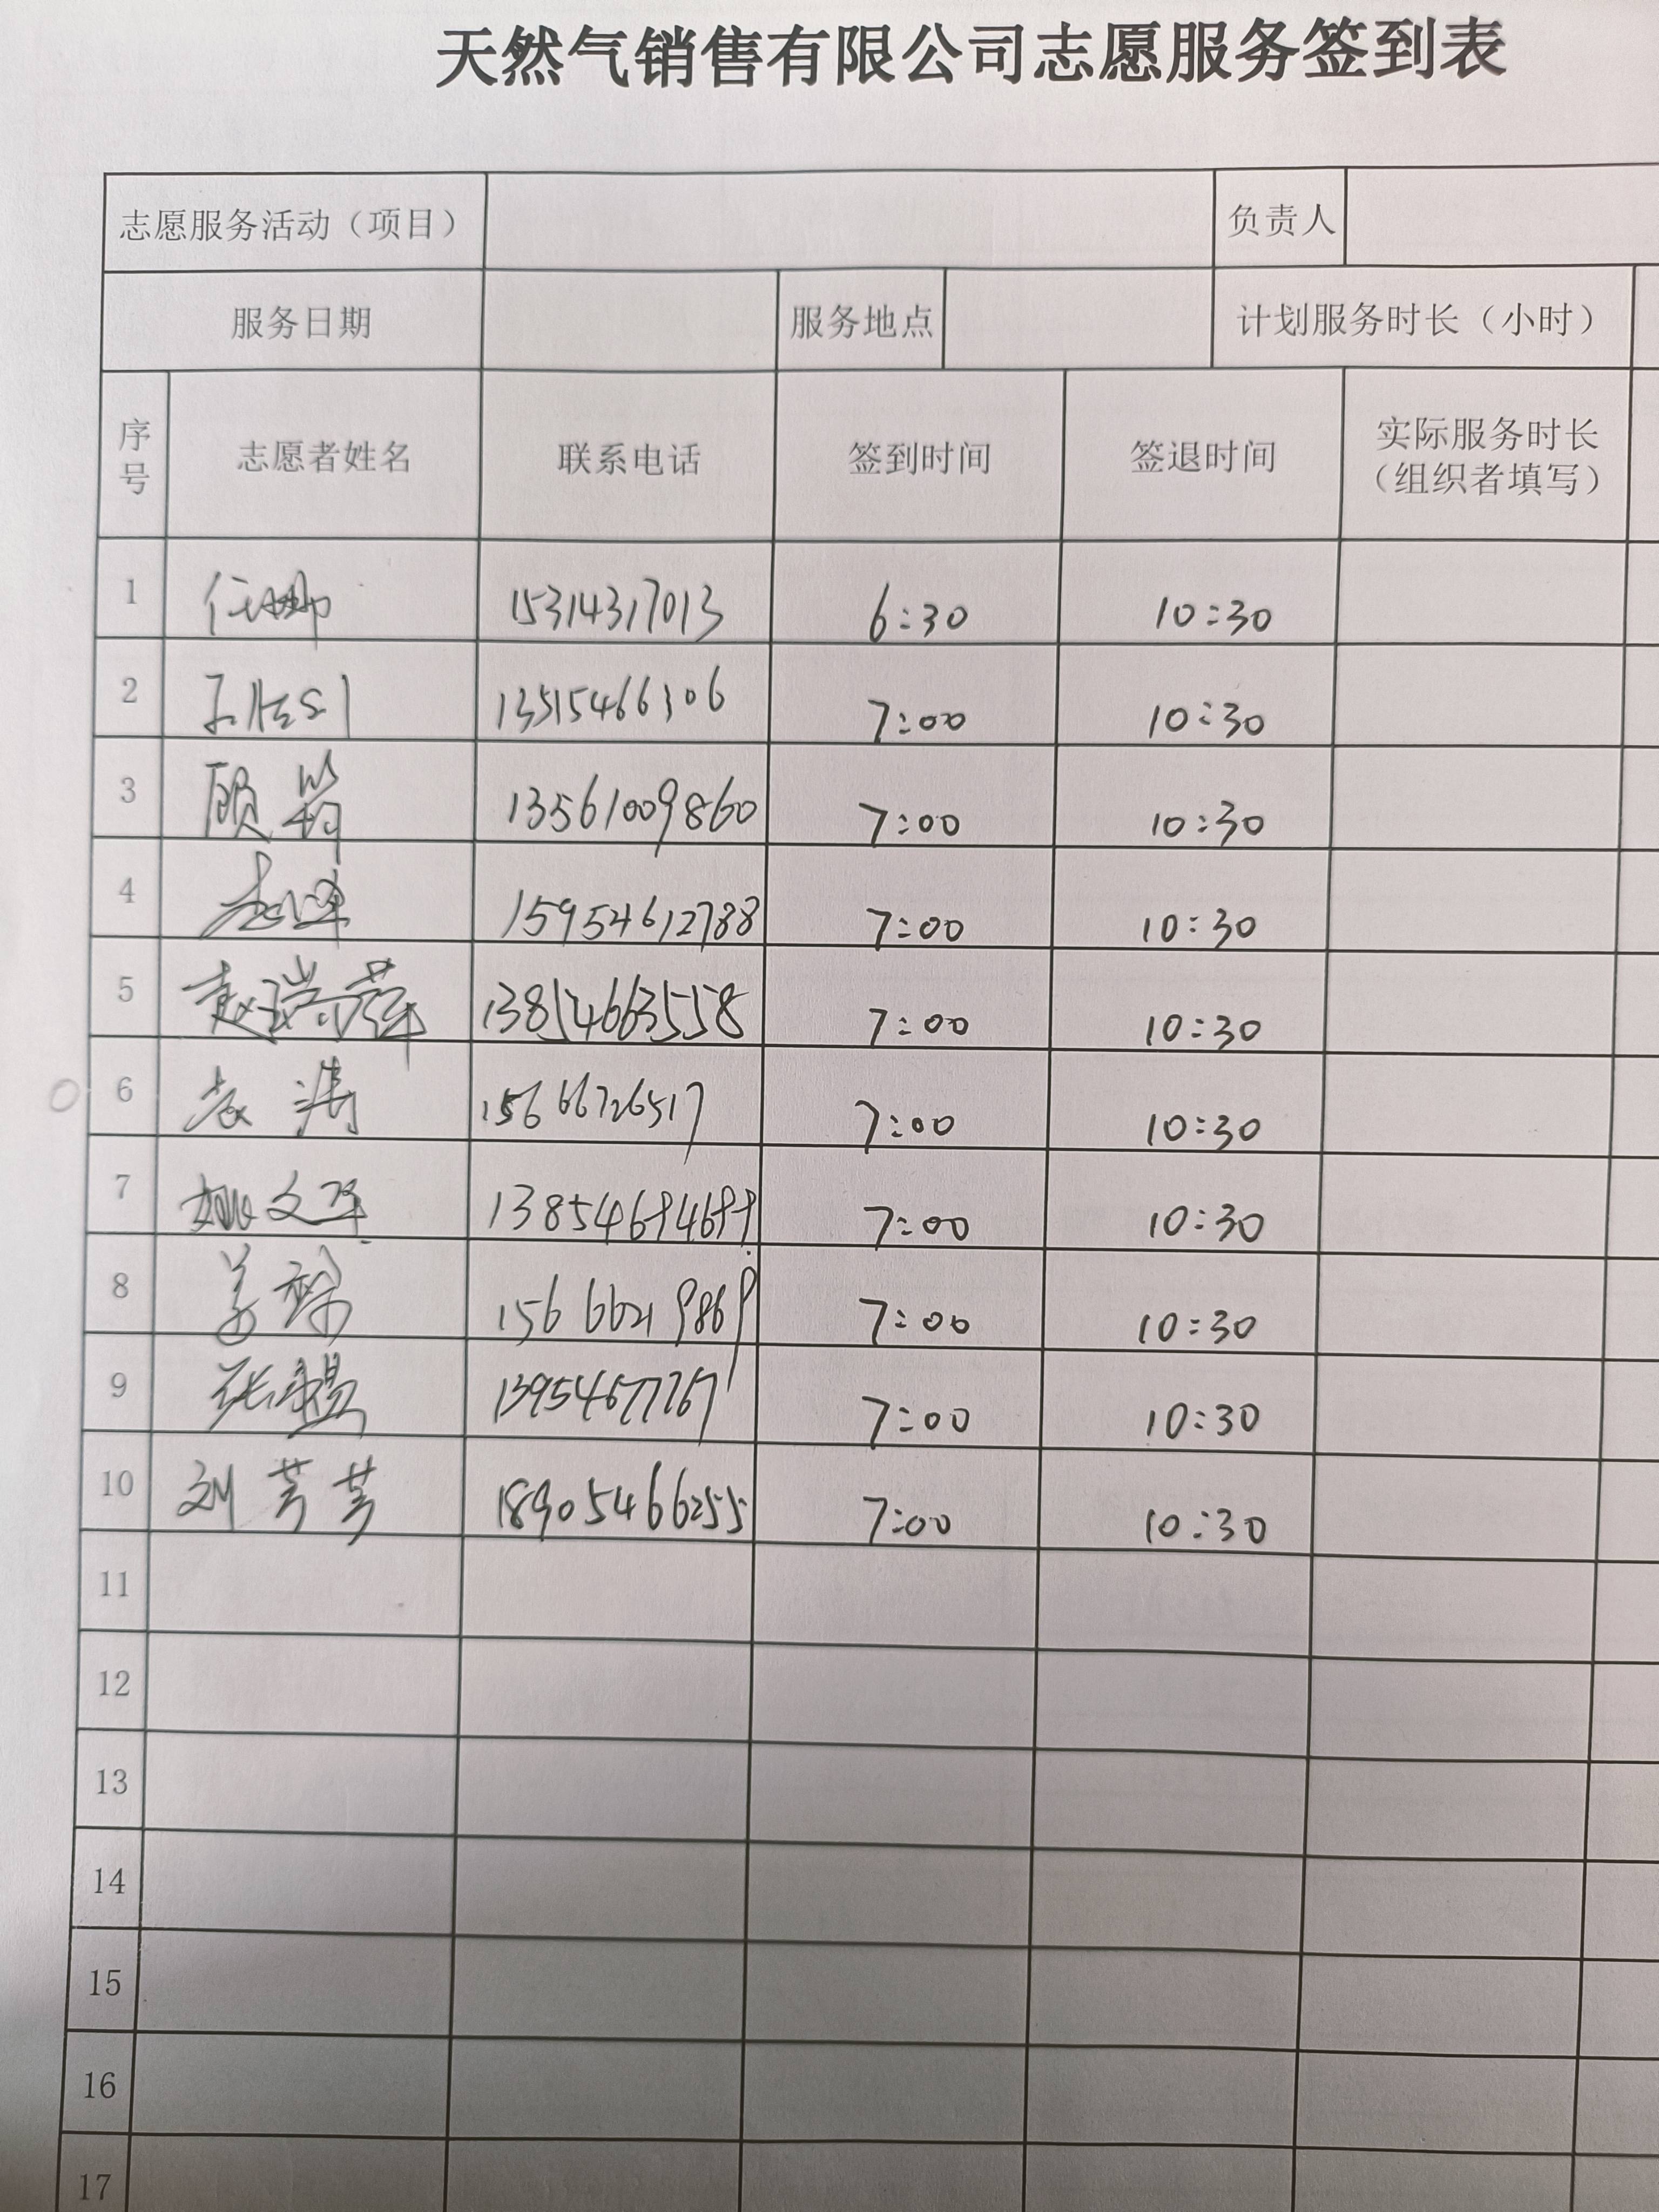 天然气销售有限公司志愿服务签到表
志愿服务活动（项目） 负责人
服务日期 服务地点 计划服务时长（小时）
序号 志愿者姓名 联系电话 签到时间 签退时间 实际服务时长（组织者填写）
1 任娜 15314317013 6:30 10:30
2 13515466306 7:00 10:30
3 顾筠 13561009860 7:00 10:30
4 15954612788 7:00 10:30
5 赵瑞萍 13854663558 7:00 10:30
6 袁涛 15666726517 7:00 10:30
7 姚文军 13854694699 7:00 10:30
8 姜琳 15666219869 7:00 10:30
9 张 13954677767 7:00 10:30
10 刘芳芳 18905466255 7:00 10:30
11
12
13
14
15
16
17